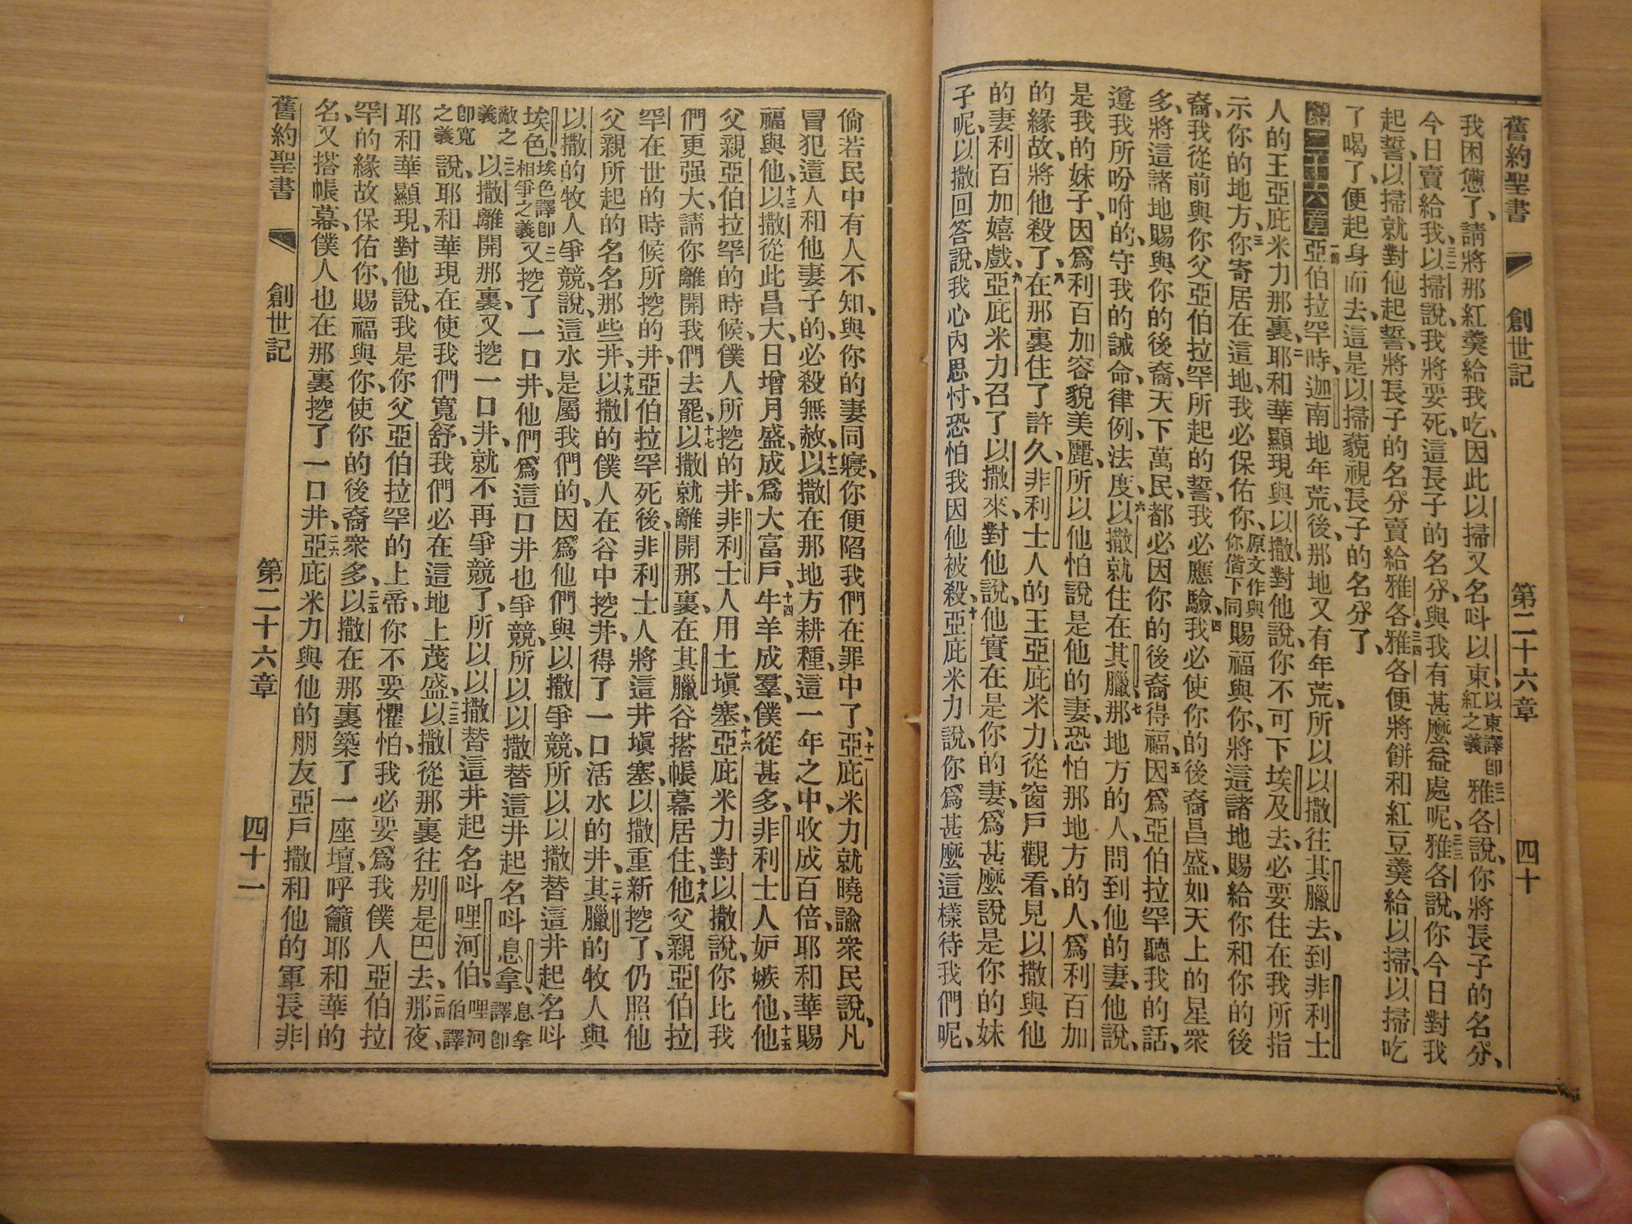 舊約聖書 創世記 第二十六章 四十
我困憊了、請將那紅羹給我吃、因此以掃又名呌以東、以東譯卽紅之義 三一雅各說、你將長子的名分、
今日賣給我、三二以掃說、我將要死、這長子的名分、與我有甚麽益處呢、三三雅各說、你今日對我
起誓、以掃就對他起誓、將長子的名分賣給雅各、三四雅各便將餅和紅豆羹給以掃、以掃吃
了喝了、便起身而去、這是以掃藐視長子的名分了、
第二十六章 一亞伯拉罕時、迦南地年荒、後那地又有年荒、所以以撒往其臘去、到非利士
人的王亞庇米力那裏、二耶和華顯現與以撒、對他說、你不可下埃及去、必要住在我所指
示你的地方、三你寄居在這地、我必保佑你、原文作與你偕下同 賜福與你、將這諸地賜給你和你的後
裔、我從前與你父亞伯拉罕所起的誓、我必應驗、四我必使你的後裔昌盛、如天上的星衆
多、將這諸地賜與你的後裔、天下萬民、都必因你的後裔得福、五因爲亞伯拉罕聽我的話、
遵我所吩咐的、守我的誡命律例、法度、六以撒就住在其臘、七那地方的人、問到他的妻、他說、
是我的妹子、因爲利百加容貌美麗、所以他怕說是他的妻、恐怕那地方的人、爲利百加
的緣故、將他殺了、八在那裏住了許久、非利士人的王亞庇米力、從窗戶觀看、見以撒與他
的妻利百加嬉戲、九亞庇米力召了以撒來、對他說、他實在是你的妻、爲甚麽說是你的妹
子呢、以撒回答說、我心內思忖、恐怕我因他被殺、十亞庇米力說、你爲甚麽這樣待我們呢、
倘若民中有人不知、與你的妻同寢、你便陷我們在罪中了、十一亞庇米力就曉諭衆民說、凡
冒犯這人和他妻子的、必殺無赦、十二以撒在那地方耕種、這一年之中、收成百倍、耶和華賜
福與他、十三以撒從此昌大、日增月盛、成爲大富戶、十四牛羊成羣、僕從甚多、非利士人妒嫉他、十五他
父親亞伯拉罕的時候、僕人所挖的井、非利士人用土塡塞、十六亞庇米力對以撒說、你比我
們更强大、請你離開我們去罷、十七以撒就離開那裏、在其臘谷搭帳幕居住、十八他父親亞伯拉
罕在世的時候所挖的井、亞伯拉罕死後、非利士人將這井塡塞、以撒重新挖了、仍照他
父親所起的名名那些井、十九以撒的僕人在谷中挖井、得了一口活水的井、二十其臘的牧人與
以撒的牧人爭競、說、這水是屬我們的、因爲他們與以撒爭競、所以以撒替這井起名呌
埃色、埃色譯卽相爭之義 二一又挖了一口井、他們爲這口井也爭競、所以以撒替這井起名呌息拿、息拿譯卽
敵之義 二二以撒離開那裏、又挖一口井、就不再爭競了、所以以撒替這井起名呌哩河伯、哩河伯譯
卽寬之義 說、耶和華現在使我們寬舒、我們必在這地上茂盛、二三以撒從那裏往別是巴去、二四那夜、
耶和華顯現、對他說、我是你父亞伯拉罕的上帝、你不要懼怕、我必要爲我僕人亞伯拉
罕的緣故、保佑你、賜福與你、使你的後裔衆多、二五以撒在那裏築了一座壇、呼籲耶和華的
名、又搭帳幕、僕人也在那裏挖了一口井、二六亞庇米力與他的朋友亞戶撒和他的軍長非
舊約聖書 創世記 第二十六章 四十一